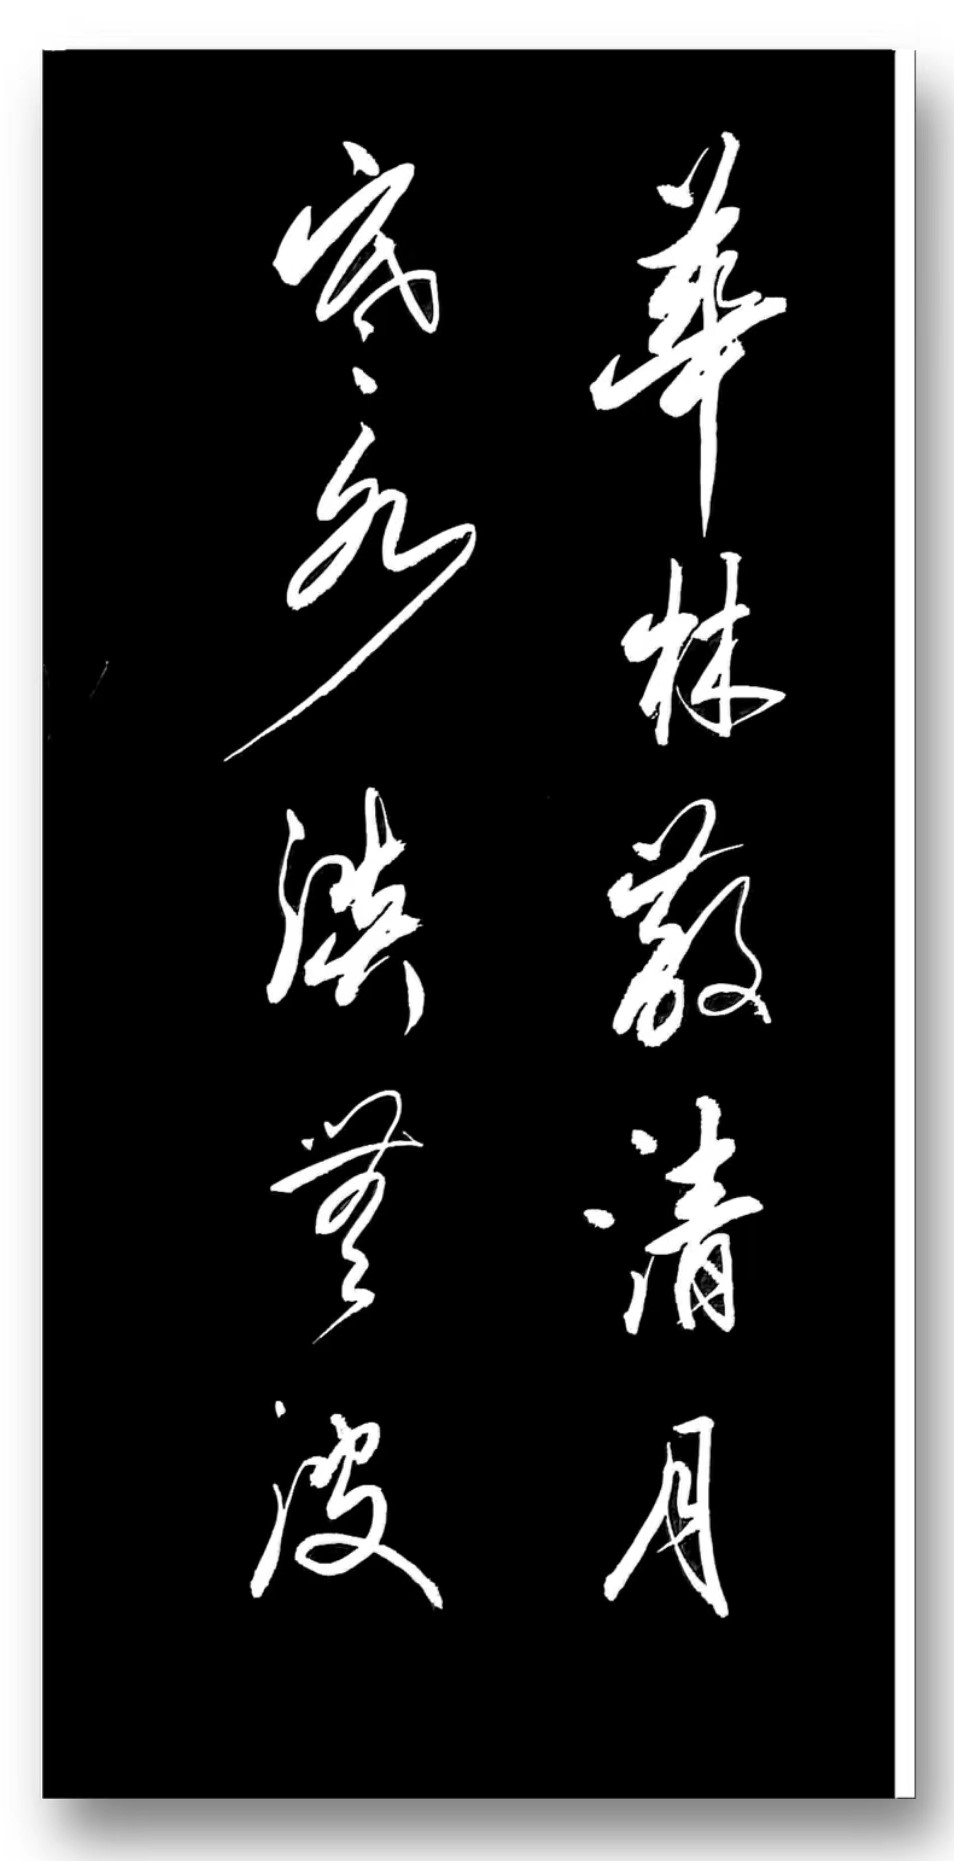 華林散清月
寒水淡無波